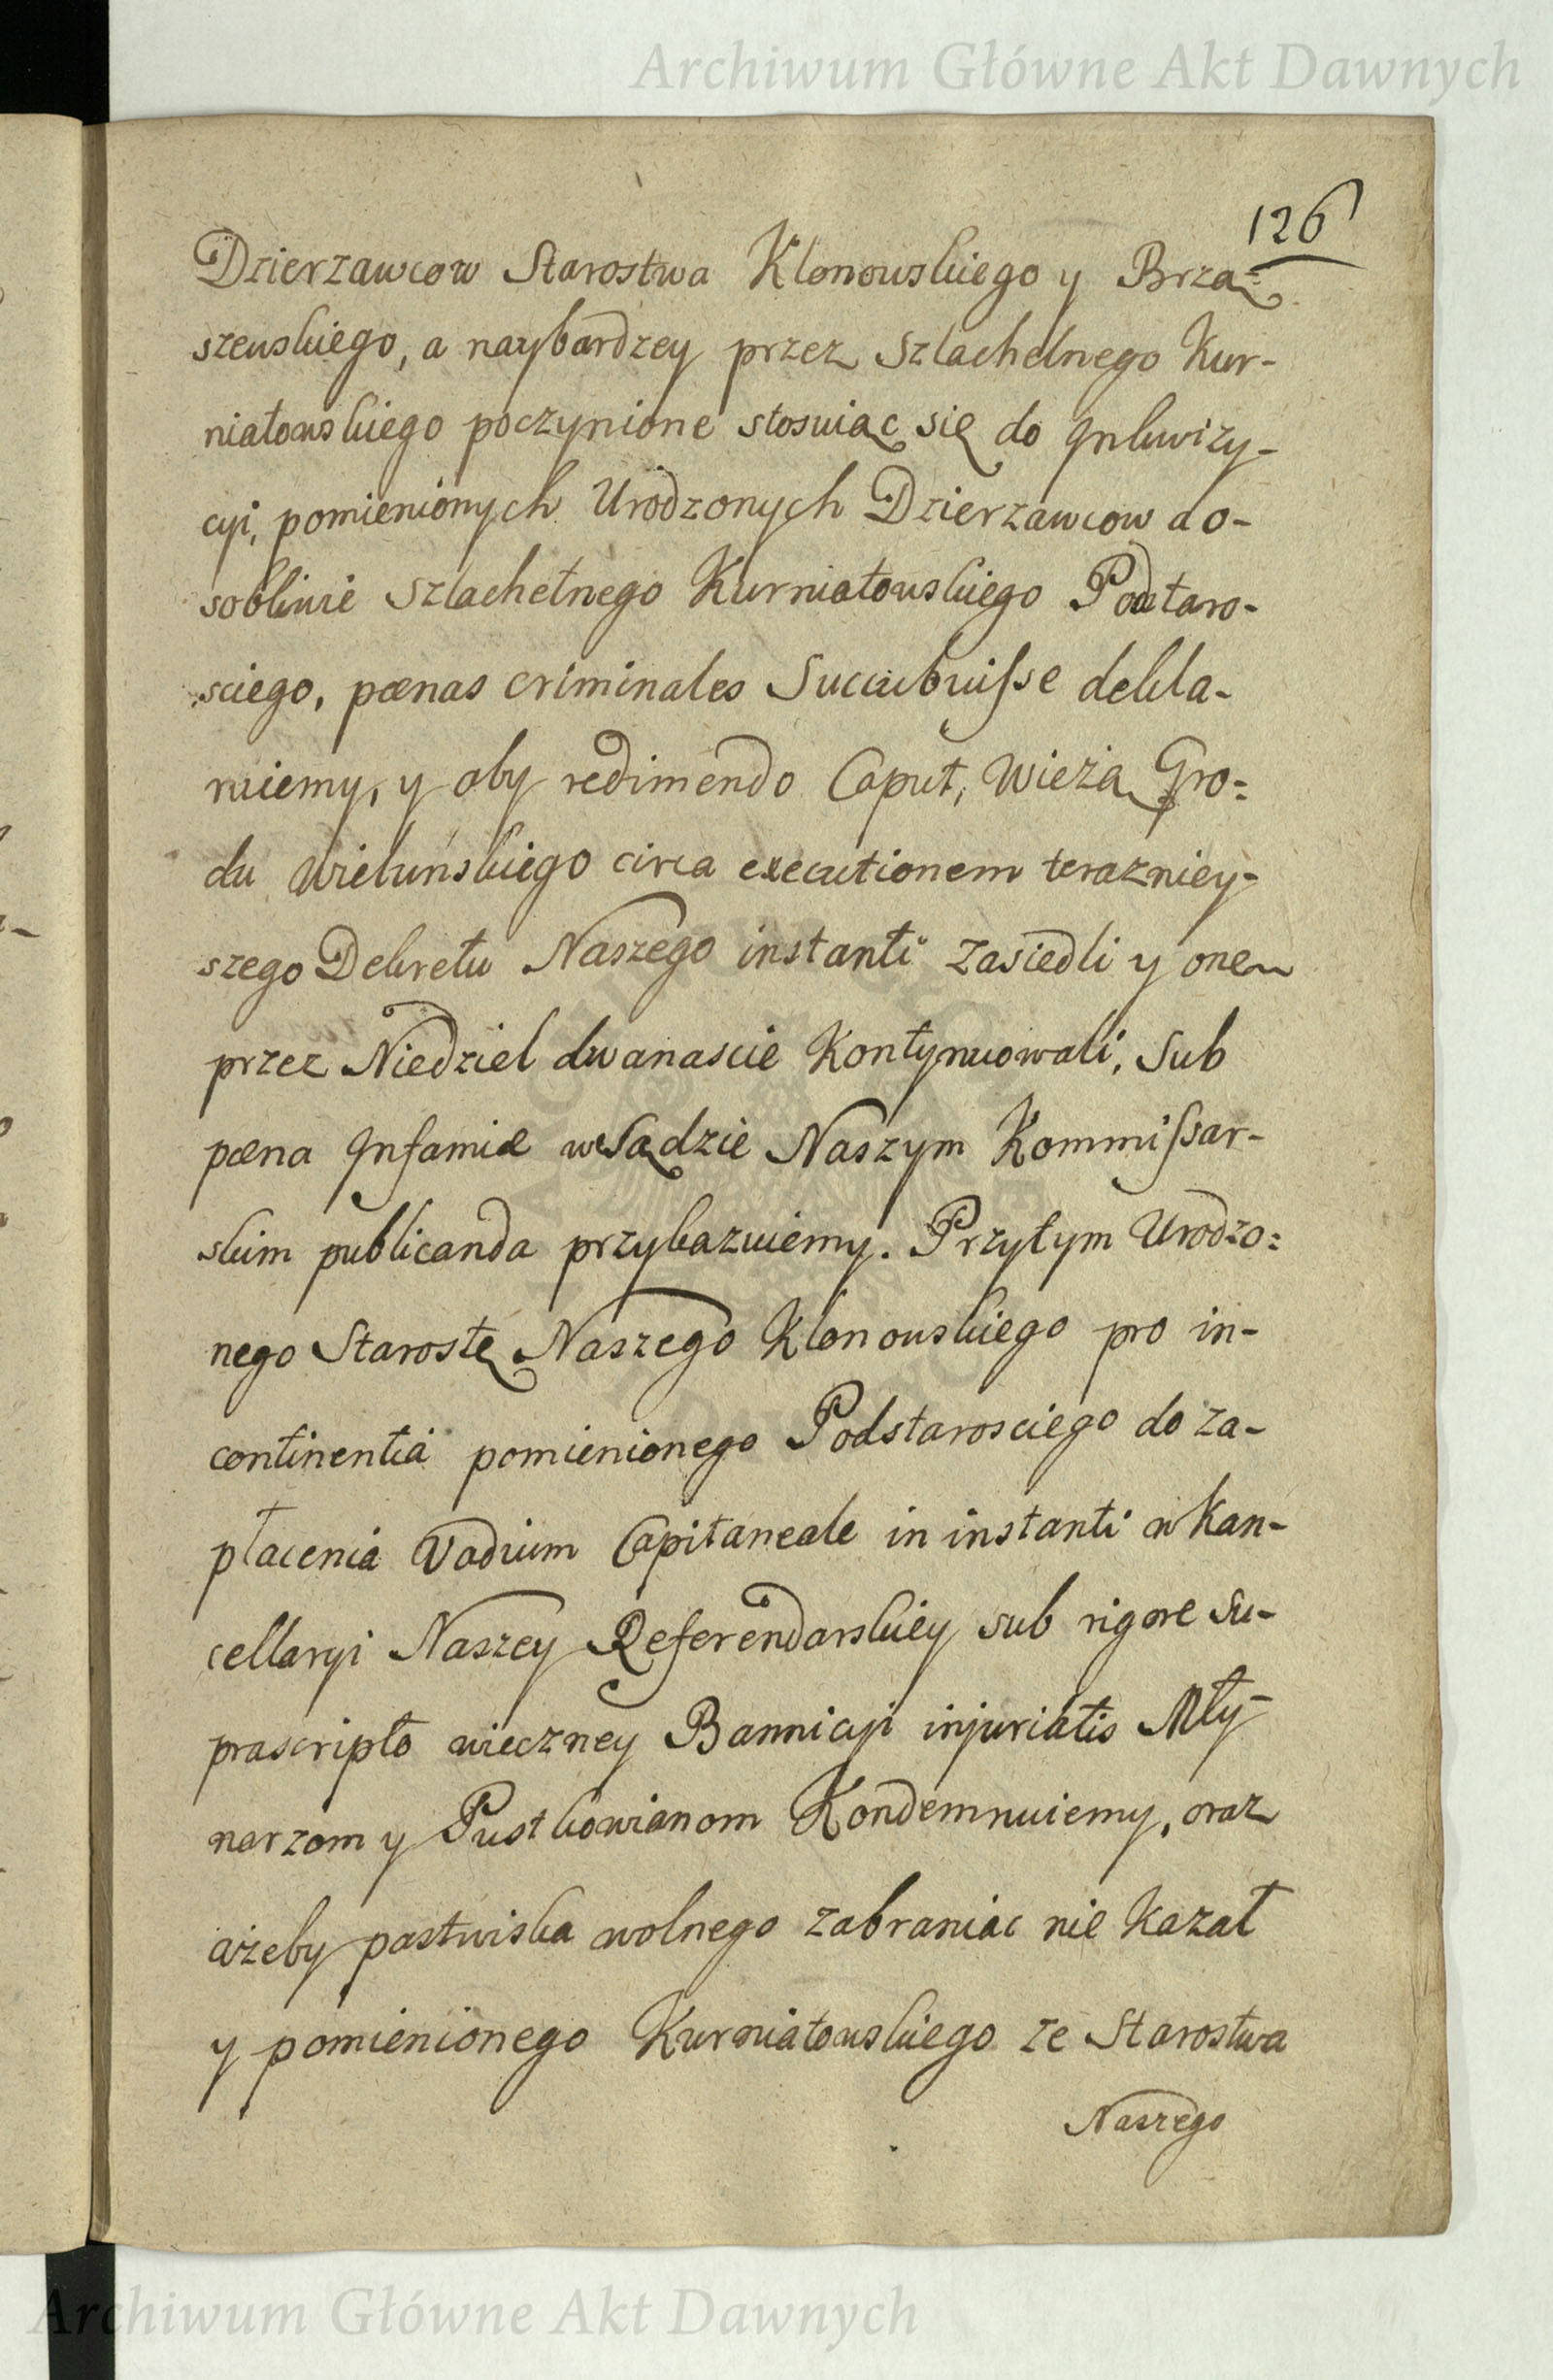 Archiwum Główne Akt Dawnych
126
Dzierzawcow Starostwa Klonowskiego y Brzą=
szewskiego, a naybardzey przez Szlachetnego Kur-
niatowskiego poczynione stosuiąc się do Inkwizy-
cyi, pomienionych Urodzonych Dzierzawcow do-
soblinie Szlachetnego Kurniatowskiego Podstaro-
sciego, pœnas criminales Succubuisse dekla-
ruiemy, y aby redimendo Caput, Wieżą Gro=
du Wielunskiego circa executionem terazniey-
szego Dekretu Naszego instanti zasiedli y one
przez Niedziel dwanascie Kontynuowali, Sub
pœna Infamiæ w Sądzie Naszym Kommissar-
skim publicanda przykazuiemy. Przytym Urodzo=
nego Starostę Naszego Klonowskiego pro in-
continentia pomienionego Podstarosciego do za-
płacenia Vadium Capitaneale in instanti w Kan-
cellaryi Naszey Referendarskiey sub rigore Su-
prascripto wieczney Bannicyi injuriatis Mły-
narzom y Pustkowianom Kondemnuiemy, oraz
ażeby pastwiska wolnego zabraniac nie kazał
y pomienionego Kurniatowskiego ze Starostwa
Naszego
Archiwum Główne Akt Dawnych